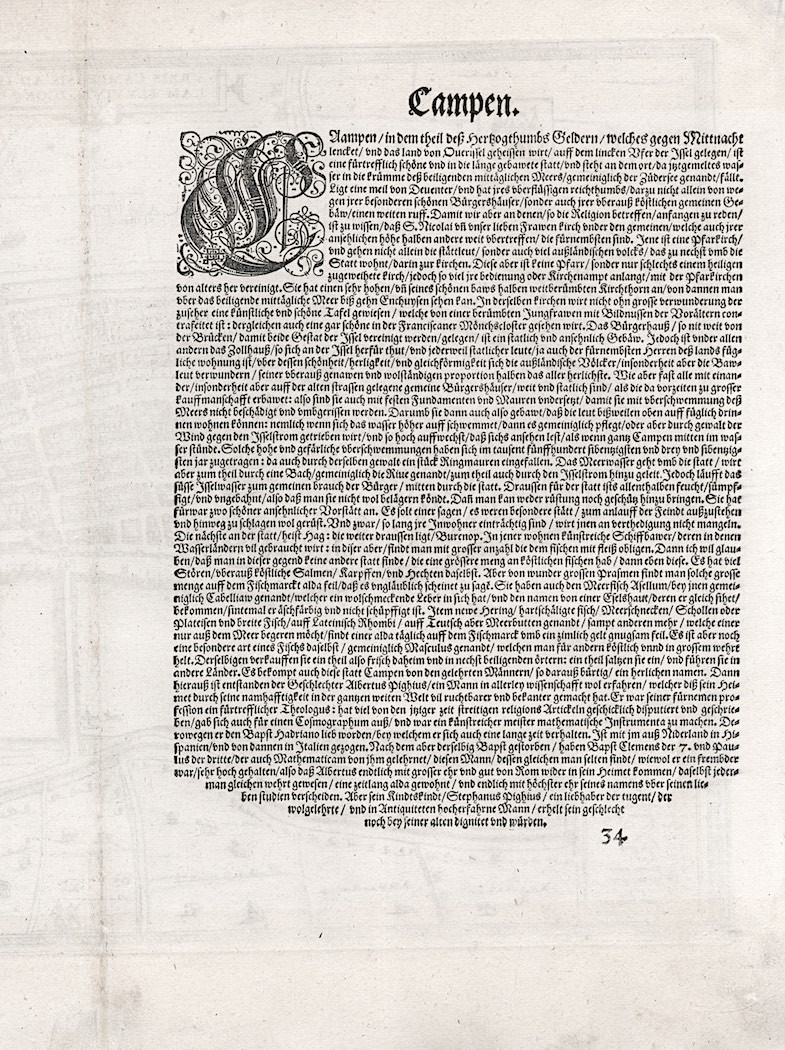 Campen.
CAampen/in dem theil deß Hertzogthumbs Geldern/welches gegen Mittnacht
lencket/vnd das land von Oueriſſel geheiſſen wirt/auff dem lincken Vfer der Jſſel gelegen/iſt
eine fürtrefflich ſchöne vnd in die länge gebawete ſtatt/vnd ſteht an dem ort/da jtzgemeltes waſ-
ſer in die krümme deß beiligenden mittäglichen Meers/gemeiniglich der Züderſee genandt/fällt.
Ligt eine meil von Deuenter/vnd hat jres vberflüſſigen reichthumbs/darzu nicht allein von we-
gen jrer beſonderen ſchönen Bürgershäuſer/ſonder auch jrer vberauß köſtlichen gemeinen Ge-
bäw/einen weiten ruff. Damit wir aber an denen/ſo die Religion betreffen/anfangen zu reden/
iſt zu wiſſen/daß S. Nicolai vñ vnſer lieben Frawen kirch vnder den gemeinen/welche auch jrer
anſehlichen höhe halben andere weit vbertreffen/die fürnembſten ſind. Jene iſt eine Pfarkirch/
vnd gehen nicht allein die ſtättleut/ſonder auch viel außländiſchen volcks/das zu nechſt vmb die
Statt wohnt/darin zur kirchen. Dieſe aber iſt keine Pfarr/ſonder nur ſchlechts einem heiligen
zugeweihete kirch/jedoch ſo viel jre bedienung oder Kirchenampt anlangt/mit der Pfarkirchen
von alters her vereinigt. Sie hat einen ſehr hohen/vñ ſeines ſchönen baws halben weitberümbten Kirchthorn an/von dannen man
vber das beiligende mittägliche Meer biß gehn Enchuyſen ſehen kan. Jn derſelben kirchen wirt nicht ohn groſſe verwunderung der
zuſeher eine künſtliche vnd ſchöne Tafel gewieſen/welche von einer berümbten Jungfrawen mit Bildnuſſen der Vorältern con-
trafeitet iſt: dergleichen auch eine gar ſchöne in der Franciſcaner Mönchscloſter geſehen wirt. Das Bürgerhauß/ſo nit weit von
der Brücken/damit beide Geſtat der Jſſel vereinigt werden/gelegen/iſt ein ſtatlich vnd anſehnlich Gebäw. Jedoch iſt vnder allen
andern das Zollhauß/ſo ſich an der Jſſel herfür thut/vnd jederweil ſtatlicher leute/ja auch der fürnembſten Herren deß lands füg-
liche wohnung iſt/vber deſſen ſchönheit/herligkeit/vnd gleichförmigkeit ſich die außländiſche Völcker/inſonderheit aber die Baw-
leut verwundern/ſeiner vberauß genawen vnd wolſtändigen proportion halben das aller herlichſte. Wie aber faſt alle mit einan-
der/inſonderheit aber auff der alten ſtraſſen gelegene gemeine Bürgershäuſer/weit vnd ſtatlich ſind/als die da vorzeiten zu groſſer
kauffmanſchafft erbawet: alſo ſind ſie auch mit feſten Fundamenten vnd Mauren vnderſetzt/damit ſie mit vberſchwemmung deß
Meers nicht beſchädigt vnd vmbgeriſſen werden. Darumb ſie dann auch alſo gebawt/daß die leut bißweilen oben auff füglich drin-
nen wohnen können: nemlich wenn ſich das waſſer höher auff ſchwemmet/dann es gemeinlich pflegt/oder aber durch gewalt der
Wind gegen den Jſſelſtrom getrieben wirt/vnd ſo hoch auffwechſt/daß ſichs anſehen leſt/als wenn gantz Campen mitten im waſ-
ſer ſtünde. Solche hohe vnd gefärliche vberſchwemmungen haben ſich im tauſent fünffhundert ſibentzigſten vnd drey vnd ſibentzig-
ſten jar zugetragen: da auch durch derſelben gewalt ein ſtück Ringmauren eingefallen. Das Meerwaſſer geht vmb die ſtatt/wirt
aber zum theil durch eine Bach/gemeiniglich die Riue genandt/zum theil auch durch den Jſſelſtrom hinzu geleit. Jedoch läufft das
ſüſſe Jſſelwaſſer zum gemeinen brauch der Bürger/mitten durch die ſtatt. Drauſſen für der ſtatt iſts allenthalben feucht/ſümpf-
figt/vnd vngebahnt/alſo daß man ſie nicht wol belägern köndt. Dañ man kan weder rüſtung noch geſchütz hinzu bringen. Sie hat
fürwar zwo ſchöner anſehnlicher Vorſtätt an. Es ſolt einer ſagen/es weren beſondere ſtätt/zum anlauff der Feindt außzuſtehen
vnd hinweg zu ſchlagen wol gerüſt. Vnd zwar/ſo lang jre Jnwohner einträchtig ſind/wirt jnen an verthedigung nicht mangeln.
Die nächſte an der ſtatt/heiſt Hag: die weiter drauſſen ligt/Burenop. Jn jener wohnen künſtreiche Schiffbawer/deren in denen
Waſſerländern vil gebraucht wirt: in diſer aber/findt man mit groſſer anzahl die dem fiſchen mit fleiß obligen. Dann ich wil glau-
ben/daß man in dieſer gegend keine andere ſtatt finde/die eine gröſſere meng an köſtlichen fiſchen hab/dann eben dieſe. Es hat viel
Stören/vberauß köſtliche Salmen/Karpffen/vnd Hechten daſelbſt. Aber von wunder groſſen Praſmen findt man ſolche groſſe
menge auff dem Fiſchmarckt alda feil/daß es vngläublich ſcheinet zu ſagē. Sie haben auch den Meerfiſch Aſellum/bey jnen gemei-
niglich Cabelliaw genandt/welcher ein wolſchmeckende Leber in ſich hat/vnd den namen von einer Eſelshaut/deren er gleich ſihet/
bekommen/ſintemal er äſchfärbig vnd nicht ſchüpffigt iſt. Jtem newe Hering/hartſchäligte fiſch/Meerſchnecken/Schollen oder
Plateiſen vnd breite Fiſch/auff Lateiniſch Rhombi/auff Teutſch aber Meerbutten genandt/ſampt anderen mehr/welche einer
nur auß dem Meer begeren möcht/findet einer alda täglich auff dem Fiſchmarck vmb ein zimlich gelt gnugſam feil. Es iſt aber noch
eine beſondere art eines Fiſchs daſelbſt/gemeiniglich Maſculus genandt/welchen man für andern köſtlich vnnd in groſſem wehrt
helt. Derſelbigen verkauffen ſie ein theil alſo friſch daheim vnd in nechſt beiligenden örtern: ein theil ſaltzen ſie ein/vnd führen ſie in
andere Länder. Es bekompt auch dieſe ſtatt Campen von den gelehrten Männern/ſo darauß bürtig/ein herlichen namen. Dann
hierauß iſt entſtanden der Geſchlechter Albertus Pighius/ein Mann in allerley wiſſenſchafft wol erfahren/welcher diß ſein Hei-
met durch ſeine namhafftigkeit in der gantzen weiten Welt vil ruchtbarer vnd bekanter gemacht hat. Er war ſeiner fürnemen pro-
feſſion ein fürtrefflicher Theologus: hat viel von den jtziger zeit ſtreitigen religions Artickeln geſchicklich diſputiert vnd geſchrie-
ben/gab ſich auch für einen Coſmographum auß/vnd war ein künſtreicher meiſter mathematiſche Jnſtrumenta zu machen. De-
rowegen er den Bapſt Hadriano lieb worden/bey welchem er ſich auch eine lange zeit verhalten. Jſt mit jm auß Niderland in Hi-
ſpanien/vnd von dannen in Jtalien gezogen. Nach dem aber derſelbig Bapſt geſtorben/haben Bapſt Clemens der 7. vnd Pau-
lus der dritte/der auch Mathematicam von jhm gelehrnet/dieſen Mann/deſſen gleichen man ſelten findt/wiewol er ein frembder
war/ſehr hoch gehalten/alſo daß Albertus endlich mit groſſer ehr vnd gut von Rom wider in ſein Heimet kommen/daſelbſt jeder-
man gleichen wehrt geweſen/eine zeitlang alda gewohnt/vnd endlich mit höchſter ehr ſeines namens vber ſeinen lie-
ben ſtudien verſcheiden. Aber ſein Kindtskindt/Stephanus Pighius/ein liebhaber der tugent/der
wolgelehrte/vnd in Antiquiteten hocherfahrne Mann/erhelt ſein geſchlecht
noch bey ſeiner alten dignitet vnd würden.
34